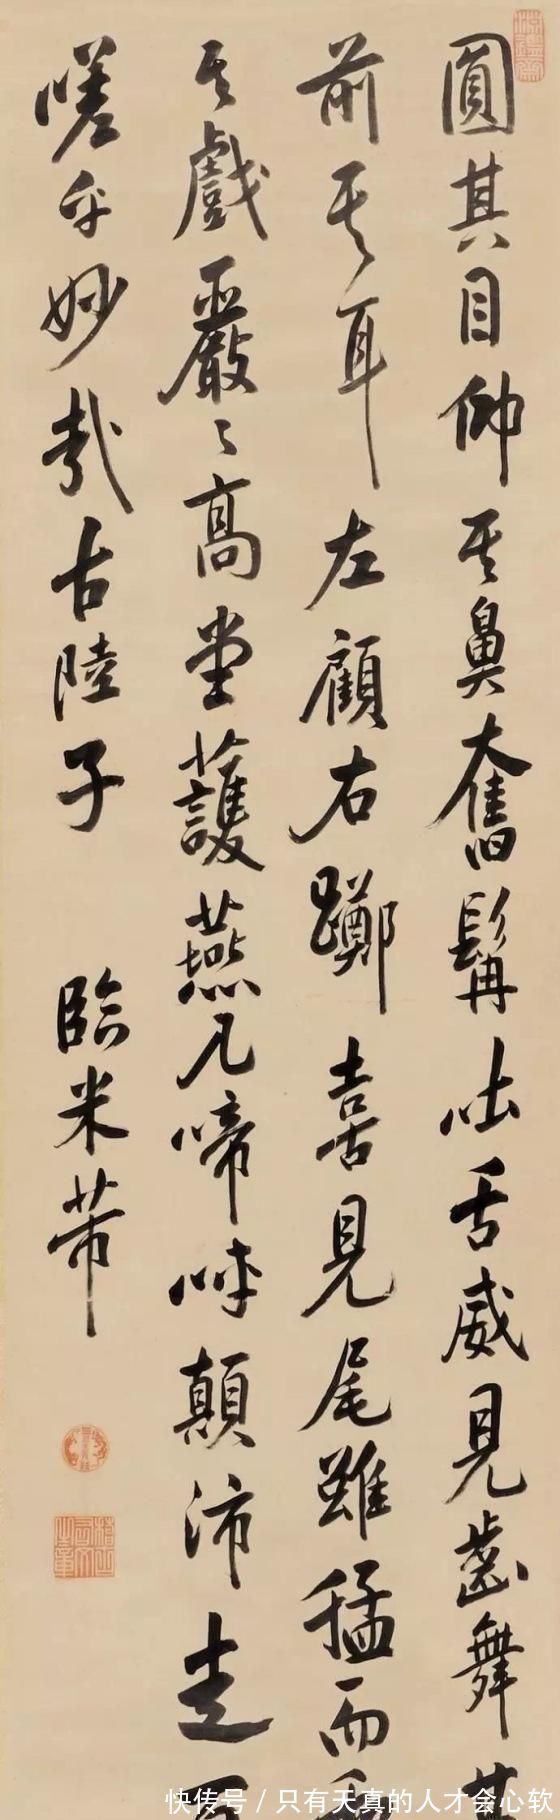 圓其目仰其鼻奮髯吐舌威見齒舞其
前其耳左顧右躑喜見尾雖猛而
其戲嚴々高堂護燕几啼呼顛沛走
嗟乎妙哉古陸子 臨米芾
快传号/只有天真的人才会心软